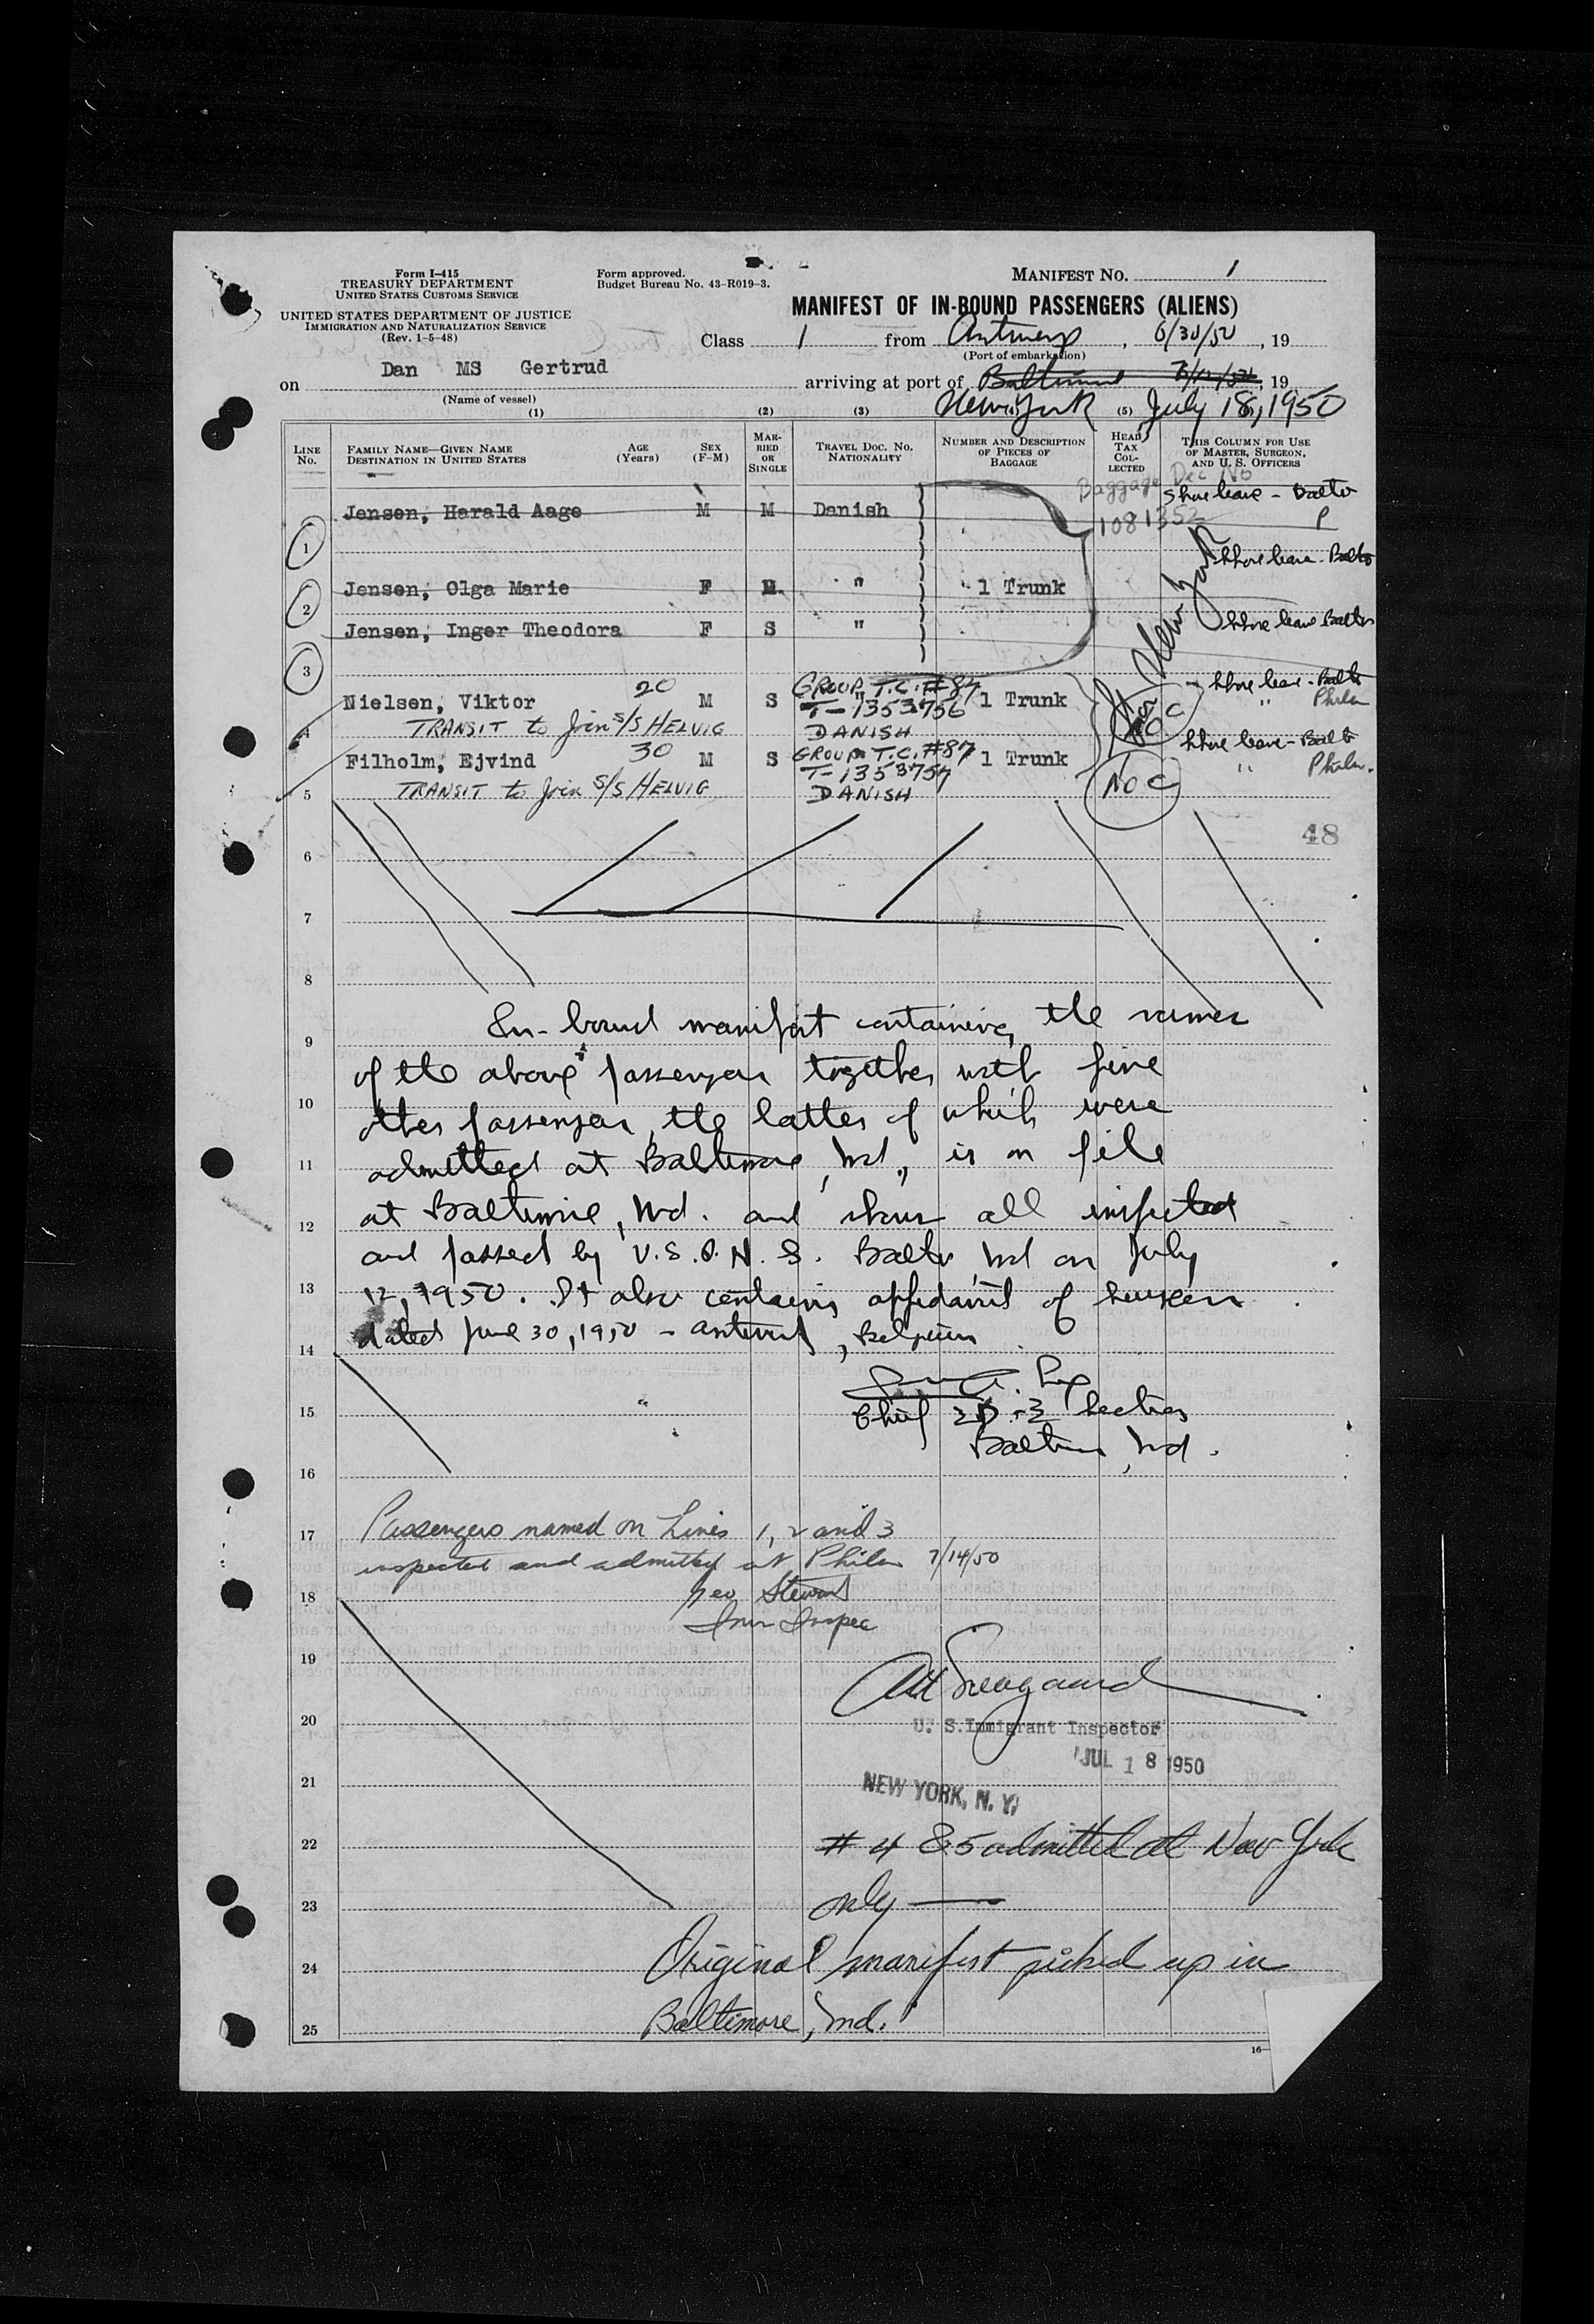 Form I-415
TREASURY DEPARTMENT
UNITED STATES CUSTOMS SERVICE
UNITED STATES DEPARTMENT OF JUSTICE
IMMIGRATION AND NATURALIZATION SERVICE
(Rev. 1-5-48)
Form approved.
Budget Bureau No. 43-R019-3.
MANIFEST NO. 1
MANIFEST OF IN-BOUND PASSENGERS (ALIENS)
Class 1 from Antwerp, 6/30/50, 19
(Port of embarkation)
on Dan MS Gertrud arriving at port of Baltimore 7/12/50, 19
(Name of vessel)
New York July 18, 1950
(1) (2) (3) (5)
LINE No. FAMILY NAME—GIVEN NAME DESTINATION IN UNITED STATES AGE (Years) SEX (F-M) MARRIED OR SINGLE TRAVEL DOC. NO. NATIONALITY NUMBER AND DESCRIPTION OF PIECES OF BAGGAGE HEAD TAX COLLECTED THIS COLUMN FOR USE OF MASTER, SURGEON, AND U. S. OFFICERS
Baggage Dec No
1081352
Jensen, Harald Aage M M Danish Shore leave - Balto P
1 Shore leave - Balto
Jensen, Olga Marie F M " 1 Trunk
2
Jensen, Inger Theodora F S " Shore leave Balto
3
New York
Nielsen, Viktor 20 M S GROUP T.C. #87 T-1353756 DANISH 1 Trunk Shore leave - Balto
" Phila
4 TRANSIT to Join S/S HELVIG
Filholm, Ejvind 30 M S GROUP T.C. #87 T-1353757 DANISH 1 Trunk NOC Shore leave - Balto
" Phila.
5 TRANSIT to Join S/S HELVIG
48
6
7
8
In-bound manifest containing the names
9
of the above passengers together with five
10
other passengers, the latter of which were
11
admitted at Baltimore, Md., is on file
12
at Baltimore, Md. and shows all inspected
and passed by U.S.I.N.S. Balto Md on July
13
12, 1950. It also contains affidavit of surgeon
dated June 30, 1950 - Antwerp, Belgium
14
15
Chief Section
Baltimore, Md.
16
17
Passengers named on Lines 1, 2 and 3
inspected and admitted at Phila 7/14/50
18
Geo Stewart
Imm Inspec
19
20
U. S. Immigrant Inspector
JUL 18 1950
21
NEW YORK, N. Y.
22
# 4 & 5 admitted at New York
23
only
24
Original manifest picked up in
25
Baltimore, Md.
16—